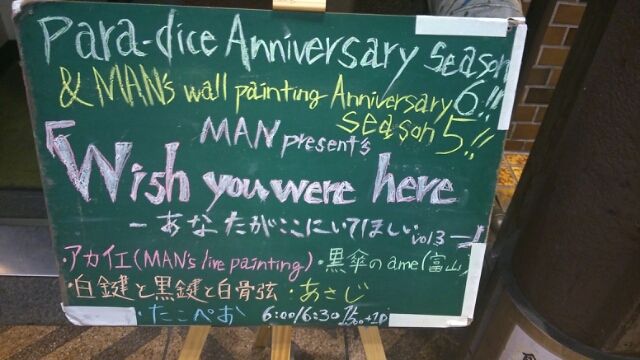 Para-dice Anniversary Season 6!!
& MAN's wall painting Anniversary season 5!!
MAN present's
Wish you were here
-あなたがここにいてほしい vol3-
・アカイエ(MAN's live painting)・黒傘のame(富山)
・白鍵と黒鍵と白骨弦・あさじ
・たこぺお 6:00/6:30 +1D